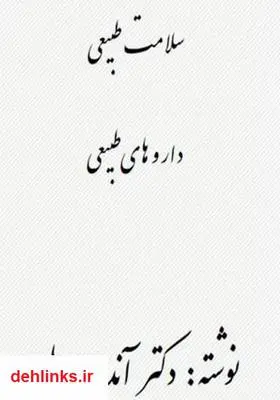 سلامت طبیعی
داروهای طبیعی
نوشته: دکتر
dehlinks.ir